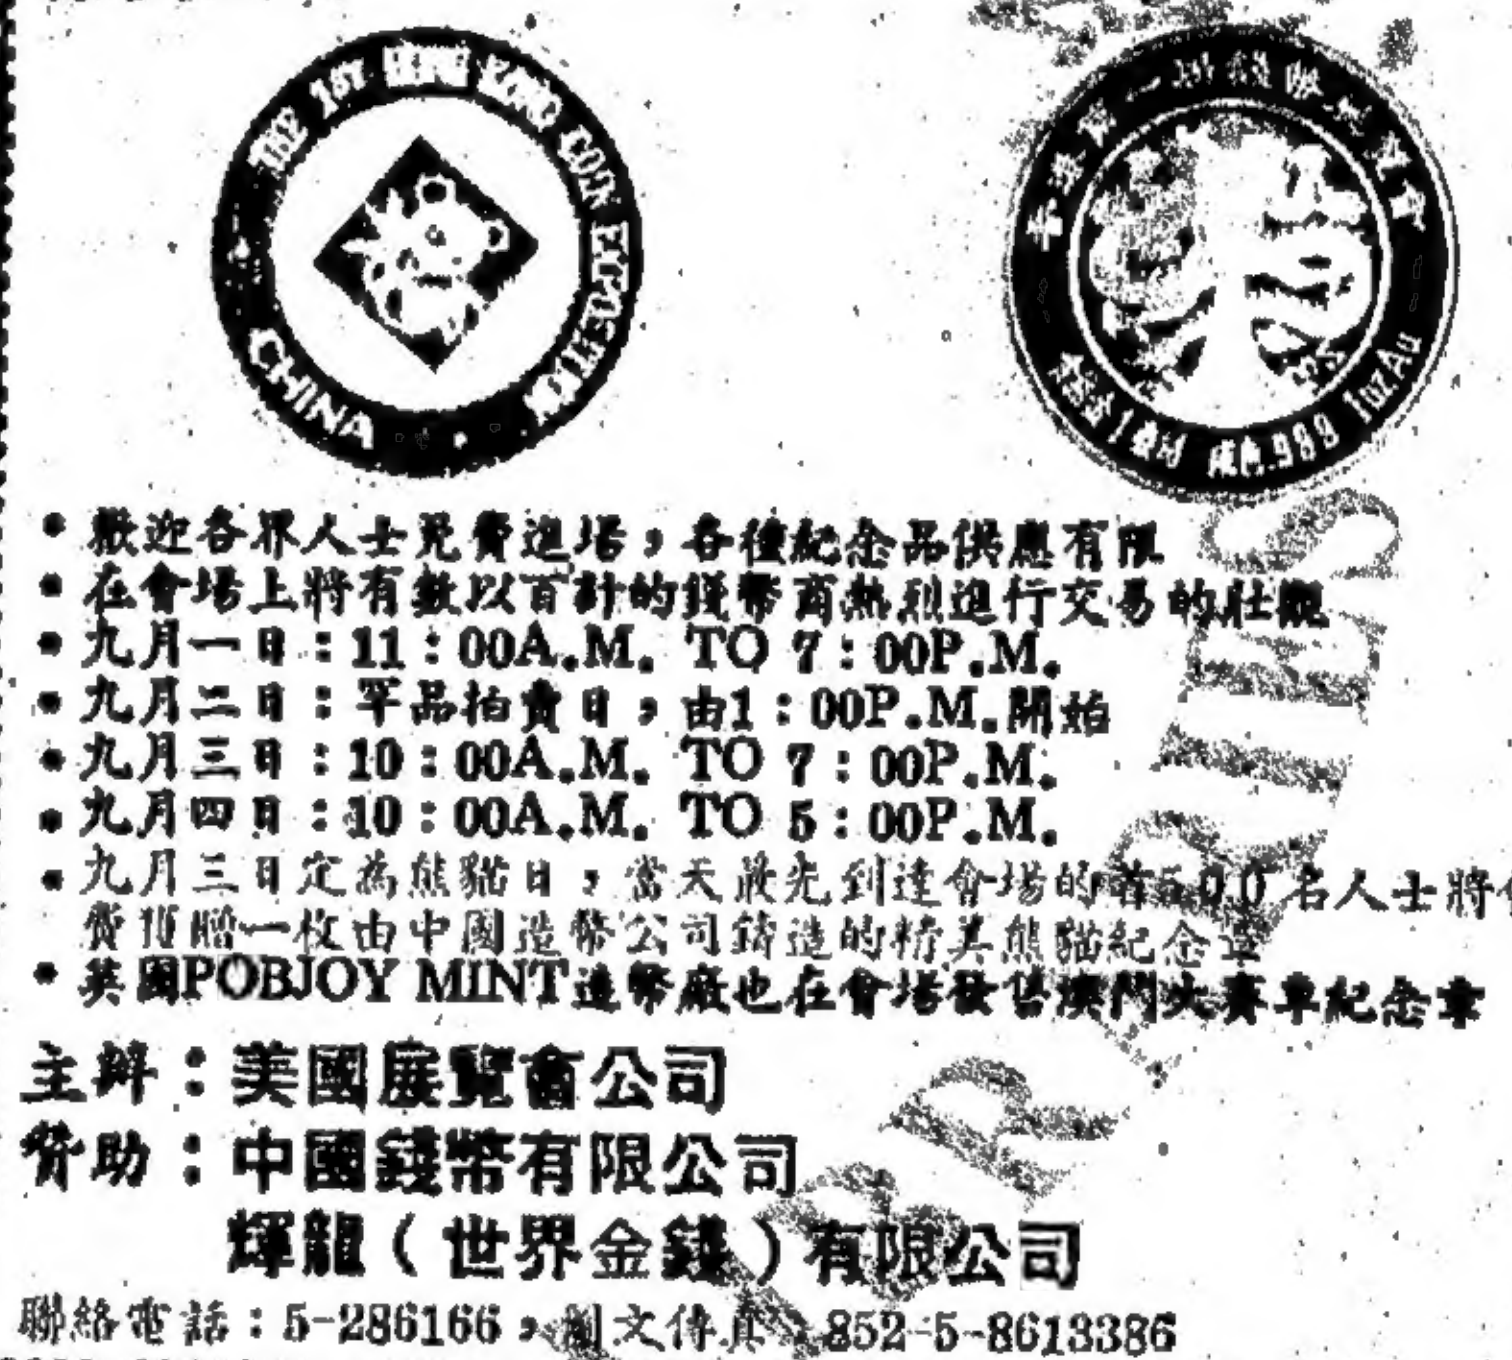 THE 1ST HONG KONG COIN EXPOSITION
CHINA
香港第一屆錢幣展覽會
純金1盎司 成色.999 1ozAu
• 歡迎各界人士免費進場，各種紀念品供應有限
• 在會場上將有數以百計的錢幣商熱烈進行交易的壯觀
• 九月一日：11：00A.M. TO 7：00P.M.
• 九月二日：罕品拍賣日，由1：00P.M.開始
• 九月三日：10：00A.M. TO 7：00P.M.
• 九月四日：10：00A.M. TO 5：00P.M.
• 九月三日定為熊貓日，當天最先到達會場的首500名人士將
費獲贈一枚由中國造幣公司鑄造的精美熊貓紀念章
• 英國POBJOY MINT造幣廠也在會場發售澳門大賽車紀念章
主辦：美國展覽會公司
贊助：中國錢幣有限公司
輝龍（世界金錢）有限公司
聯絡電話：5-286166，圖文傳真：852-5-8613386